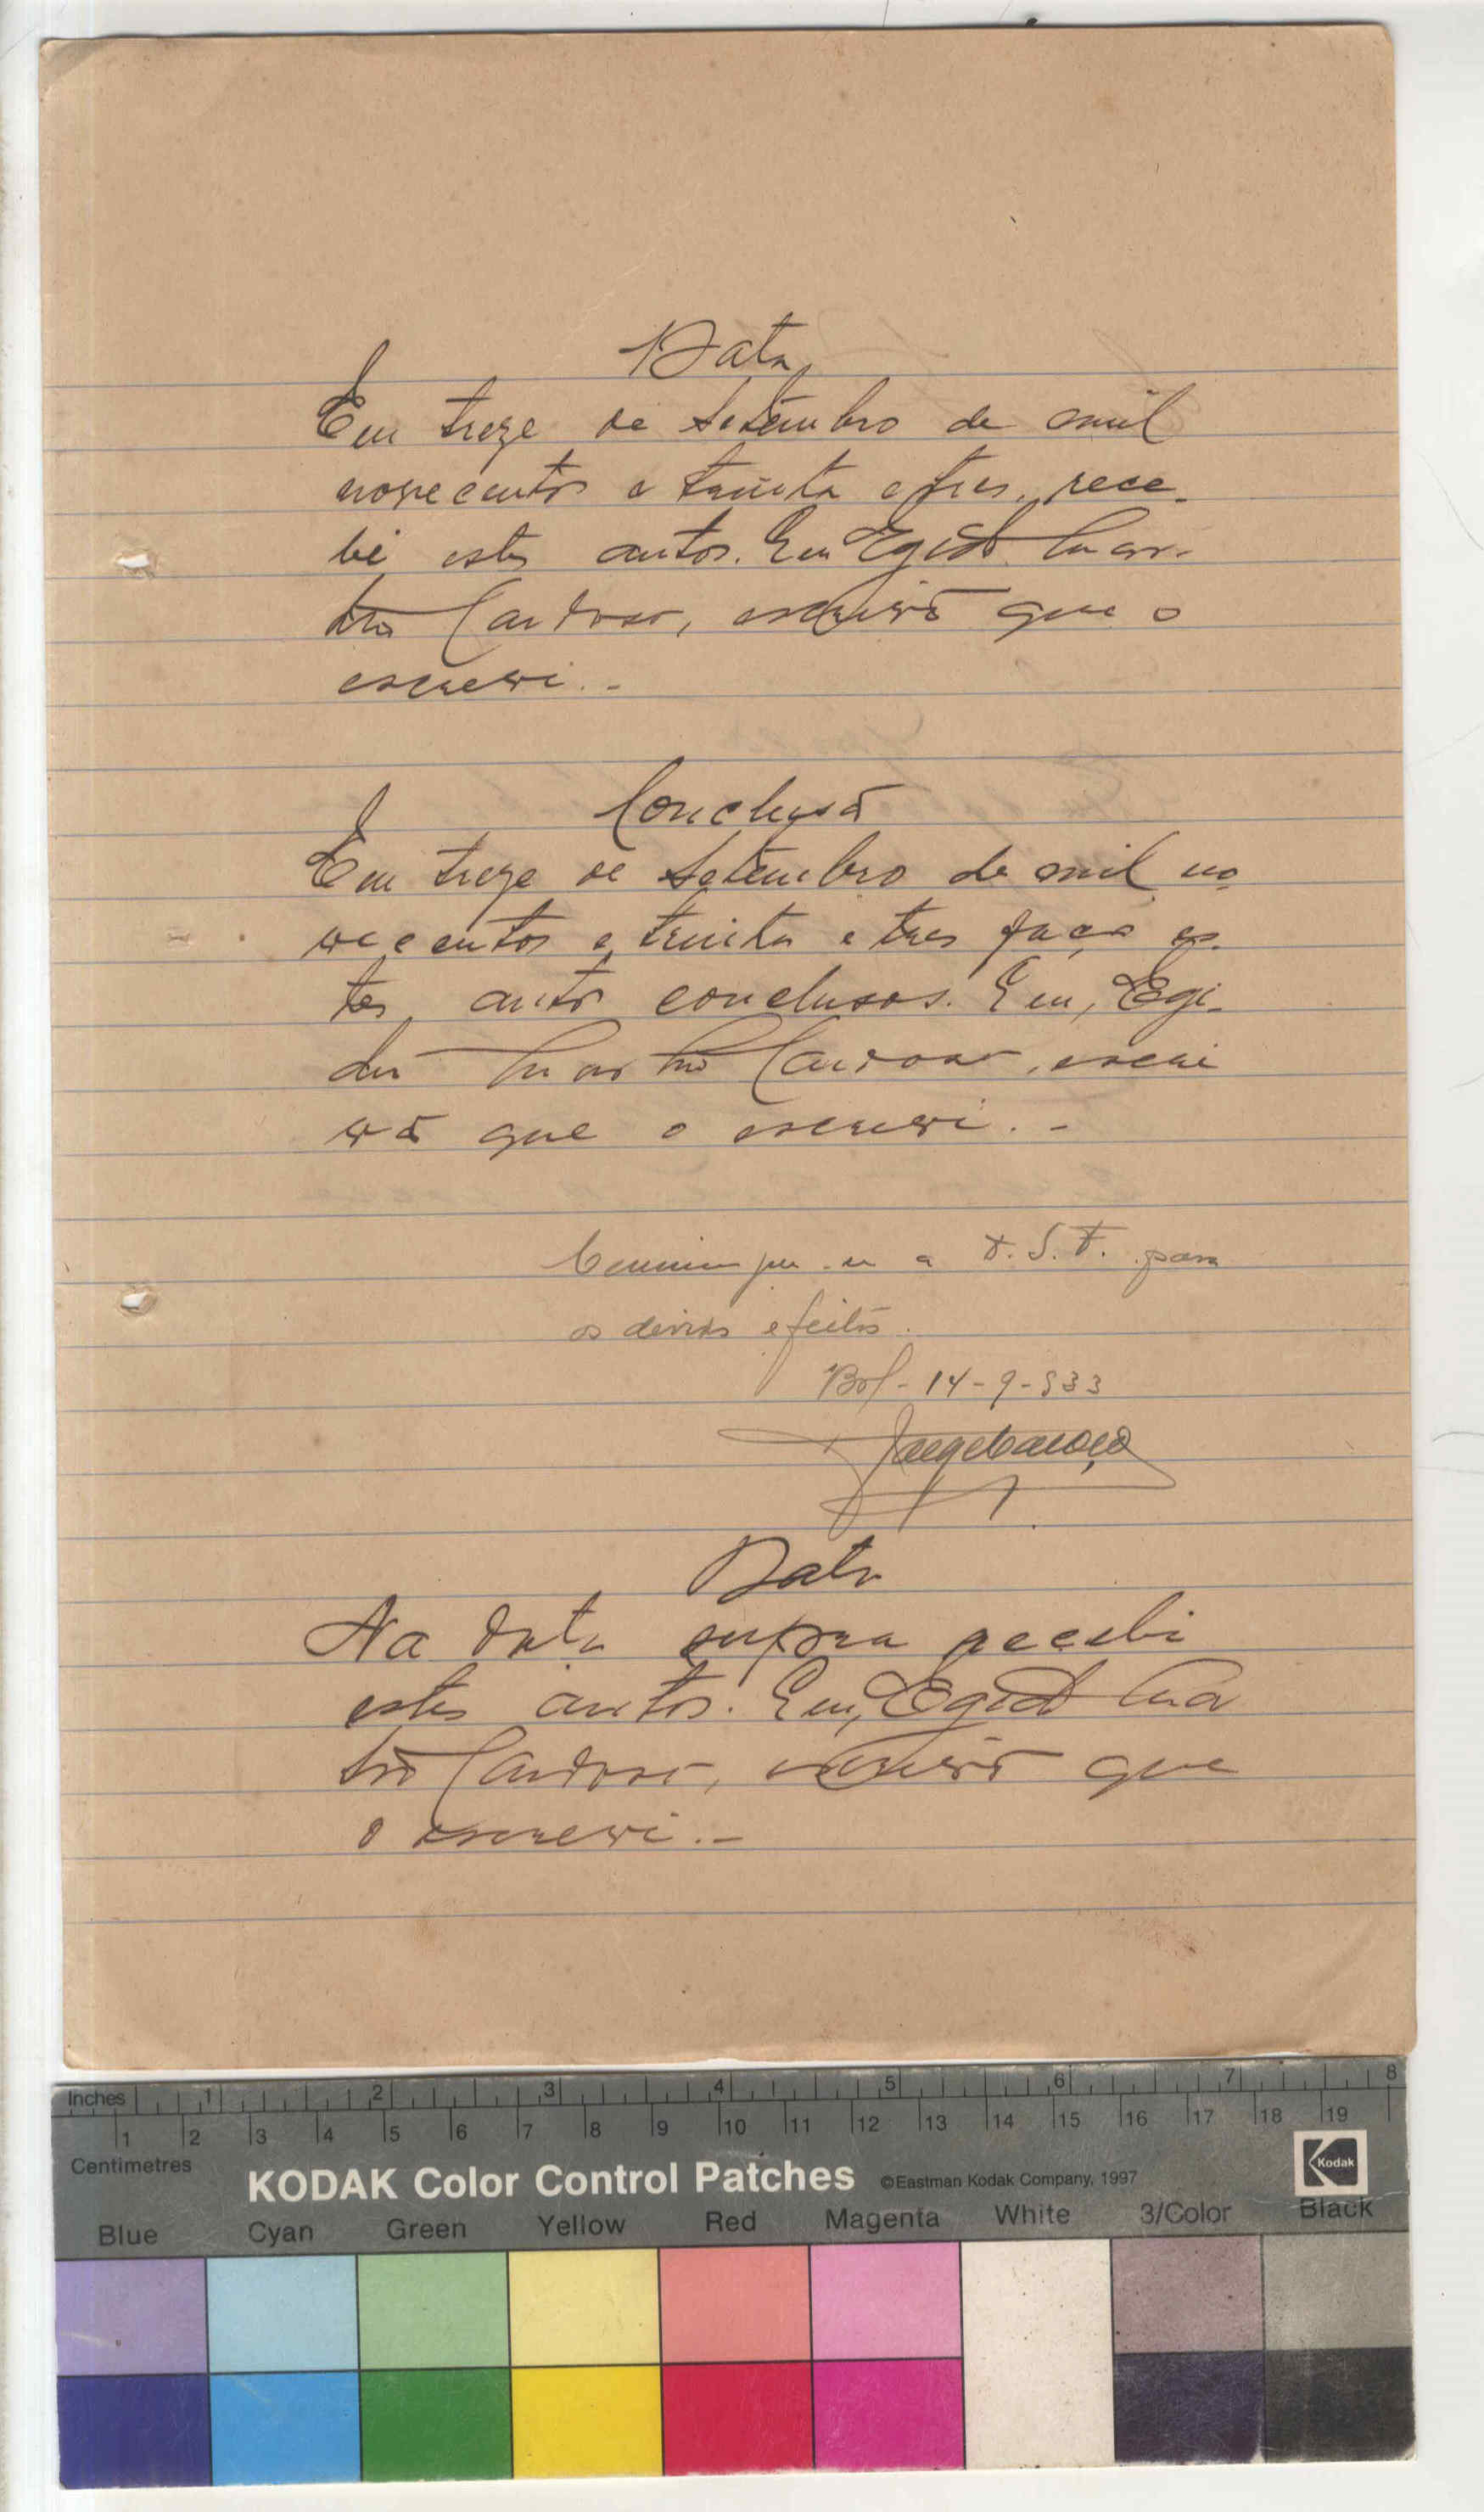 Data
Em treze de Setembro de mil
novecentos e trinta e tres, rece-
bi estes autos. Eu Egidio Mar-
tins Cardoso, escrivão que o
escrevi. -
Conclusão
Em treze de Setembro de mil no
vecentos e trinta e tres faço es-
tes autos conclusos. Eu, Egi-
dio Martins Cardoso, escri
vão que o escrevi. -
a T. S. T. para
os devidos efeitos.
14-9-933
Data
Na data supra recebi
estes autos. Eu, Egidio Mar
tins Cardoso, escrivão que
o escrevi. -
Inches 1 2 3 4 5 6 7 8
1 2 3 4 5 6 7 8 9 10 11 12 13 14 15 16 17 18 19
Centimetres
KODAK Color Control Patches ©Eastman Kodak Company, 1997 Kodak
Blue Cyan Green Yellow Red Magenta White 3/Color Black